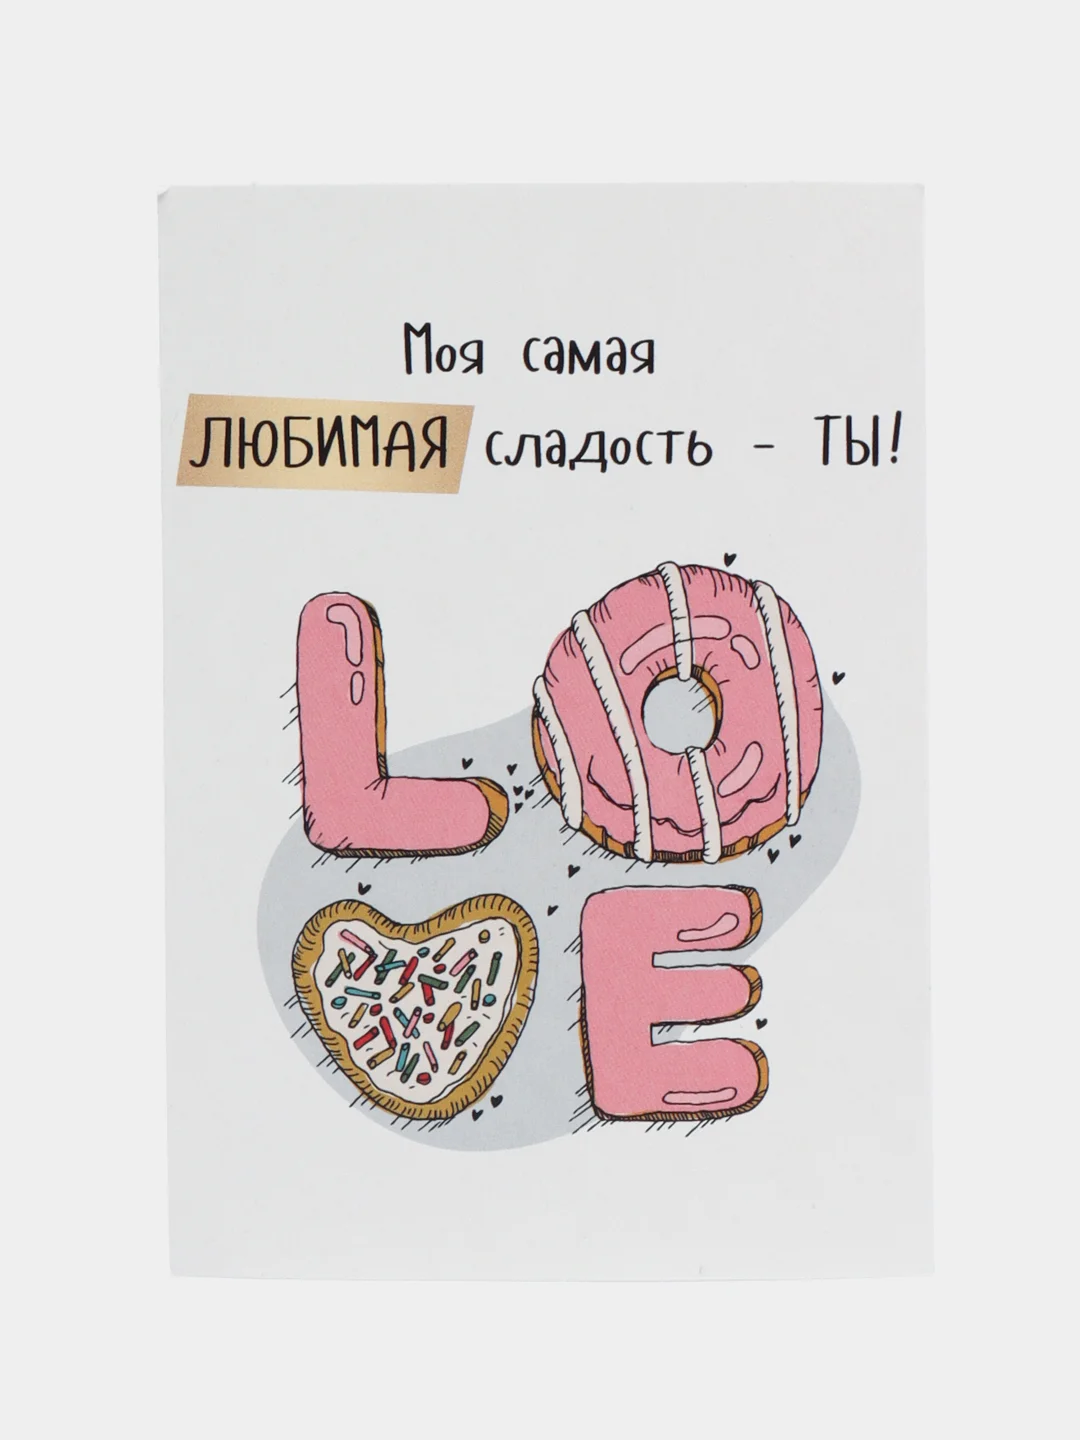 Моя самая
ЛЮБИМАЯ сладость - ТЫ!
LO
VE